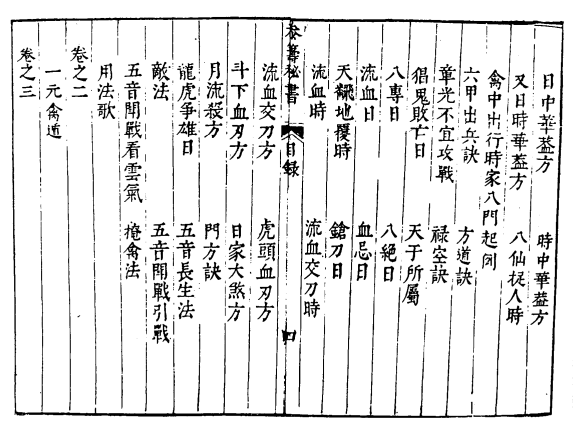 日中華蓋方　時中華蓋方
又日時華蓋方　八仙捉人時
禽中出行時家八門起例
六甲出兵訣　方道訣
章光不宜攻戰　禄空訣
猖鬼敗亡日　天干所屬
八專日　八絕日
流血日　血忌日
天翻地覆時　鎗刀日
流血時　流血交刀時
參籌秘書　目録　四
流血交刀方　虎頭血刃方
斗下血刃方　日家大煞方
月流殺方　門方訣
龍虎爭雄日　五音長生法
敵法　五音開戰引戰
五音開戰看雲氣　掩禽法
用法歌
卷之二
一元禽遁
卷之三